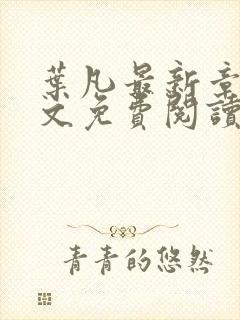 葉凡最新章
文免費閱讀
青青的悠然